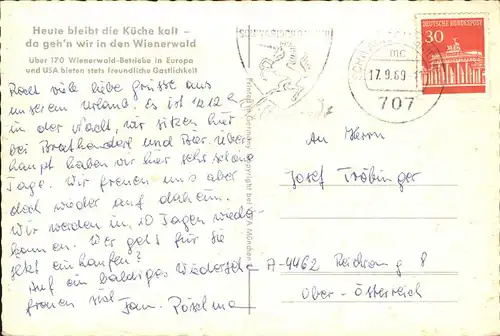 Heute bleibt die Küche kalt –
da geh'n wir in den Wienerwald
Über 170 Wienerwald-Betriebe in Europa
und USA bieten stets freundliche Gastlichkeit
DEUTSCHE BUNDESPOST
30
17.9.69
707
viele liebe Grüsse aus
unserem Urlaub. Es ist 1/2 12 h
in der Nacht, wir sitzen hier
bei Brathenderl und Bier. Über
haupt haben wir hier sehr schöne
Tage. Wir freuen uns aber
doch wieder auf daheim.
Wir werden in 10 Tagen wieder
kommen. Wer geht für Sie
jetzt einkaufen?
Auf ein baldiges Wiedersehn
freuen sich Fam.
An Herrn
Josef Tröbinger
A-4462 Reichraming 8
Ober-Österreich
Printed in Germany Copyright by München